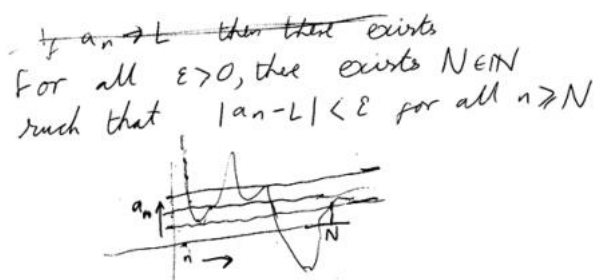 If aₙ → L then there exists
For all ε>0, thee exists N∈ℕ
such that |aₙ-L| < ε for all n⩾N
aₙ
N
n →